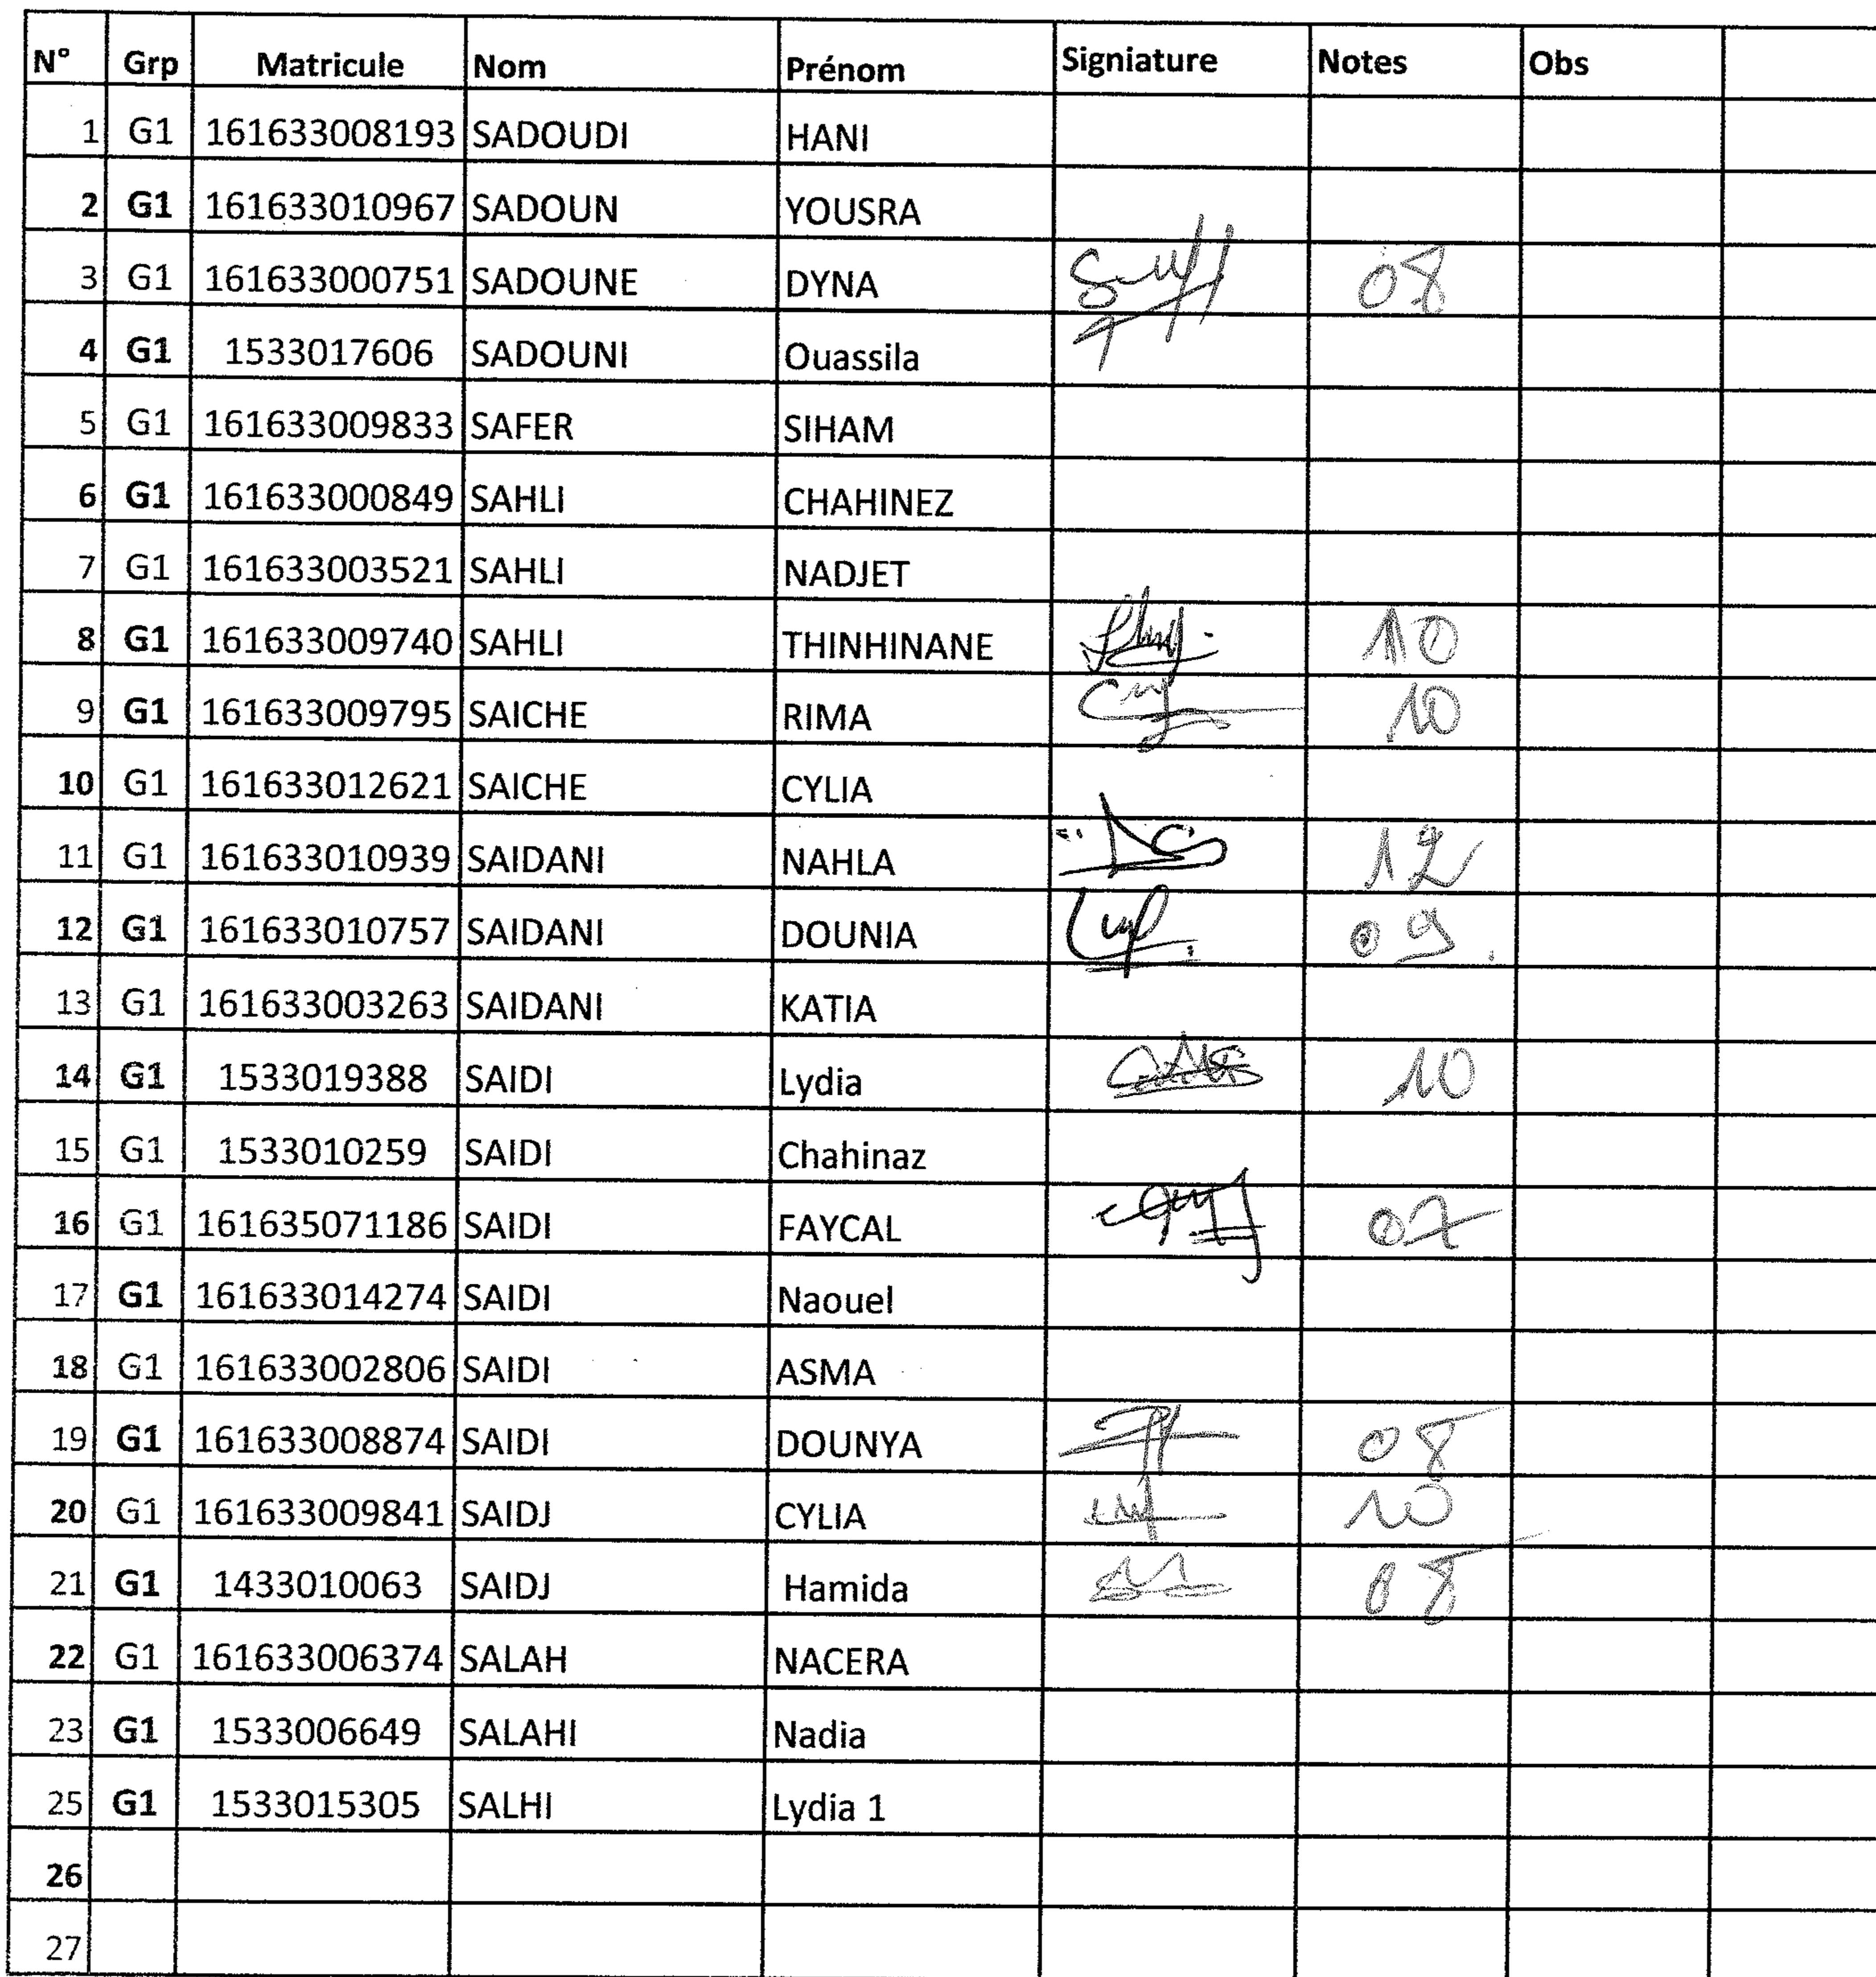 N° Grp Matricule Nom Prénom Signiature Notes Obs
1 G1 161633008193 SADOUDI HANI
2 G1 161633010967 SADOUN YOUSRA
3 G1 161633000751 SADOUNE DYNA 08
4 G1 1533017606 SADOUNI Ouassila
5 G1 161633009833 SAFER SIHAM
6 G1 161633000849 SAHLI CHAHINEZ
7 G1 161633003521 SAHLI NADJET
8 G1 161633009740 SAHLI THINHINANE 10
9 G1 161633009795 SAICHE RIMA 10
10 G1 161633012621 SAICHE CYLIA
11 G1 161633010939 SAIDANI NAHLA 12
12 G1 161633010757 SAIDANI DOUNIA 09
13 G1 161633003263 SAIDANI KATIA
14 G1 1533019388 SAIDI Lydia 10
15 G1 1533010259 SAIDI Chahinaz
16 G1 161635071186 SAIDI FAYCAL 07
17 G1 161633014274 SAIDI Naouel
18 G1 161633002806 SAIDI ASMA
19 G1 161633008874 SAIDI DOUNYA 08
20 G1 161633009841 SAIDJ CYLIA 10
21 G1 1433010063 SAIDJ Hamida 08
22 G1 161633006374 SALAH NACERA
23 G1 1533006649 SALAHI Nadia
25 G1 1533015305 SALHI Lydia 1
26
27